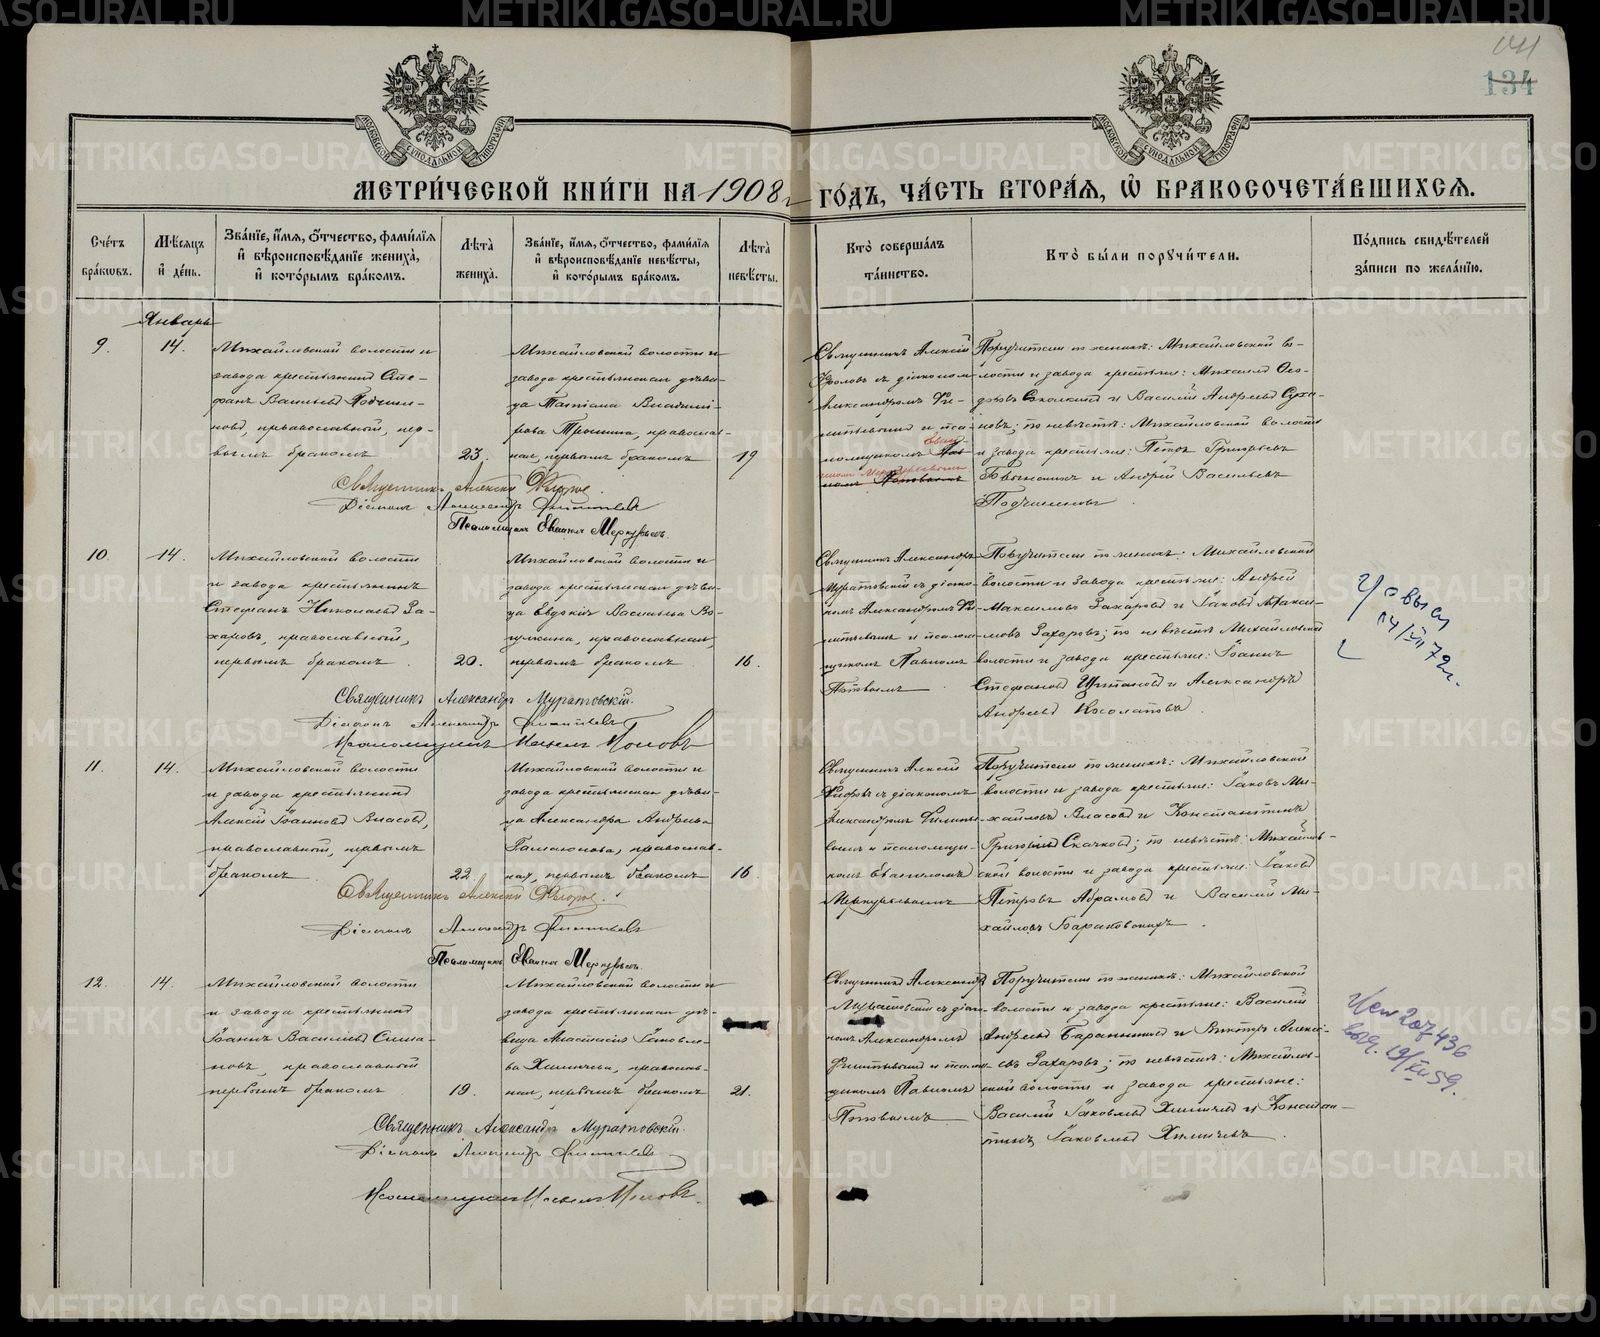 134
МЕТРИ́ЧЕСКОЙ КНИ́ГИ НА 1908 г ГО́ДЪ, ЧА́СТЬ ВТОРА́Я, Ѡ҆ БРАКОСОЧЕТА́ВШИХСЯ.
Сче́тъ бра́кѡвъ.
Мѣ́сяцъ и҆ де́нь.
Зва́нїе, и҆́мя, ѻ҆́тчество, фамѝлїя и҆ вѣроисповѣ́данїе жениха̀, и҆ кото́рымъ бра́комъ.
Лѣ́та жениха̀.
Зва́нїе, и҆́мя, ѻ҆́тчество, фамѝлїя и҆ вѣроисповѣ́данїе невѣ́сты, и҆ кото́рымъ бра́комъ.
Лѣ́та невѣ́сты.
Кто̀ соверша́лъ та́инство.
Кто̀ бы́ли порꙋчи́тели.
По́дпись свидѣ́телей за́писи по жела́нїю.
Январь
9.
14.
Михайловской волости и
завода крестьянинъ Сте-
фанъ Васильевъ Подчине-
новъ, православный, пер-
вымъ бракомъ
23.
Михайловской волости и
завода крестьянская дѣви-
ца Татіана Владимі-
рова Трошина, православ-
ная, первымъ бракомъ
19
Священникъ Алексій
съ діакономъ
Александромъ Фи-
липьевымъ и пса-
ломщикомъ
Меркурьевымъ
Поповымъ
Поручители по женихѣ: Михайловской во-
лости и завода крестьяне: Михаилъ Ѳео-
доровъ и Василій Андреевъ Суха-
новъ; по невѣстѣ: Михайловской волости
и завода крестьяне: Петръ Григорьевъ
и Андрей Васильевъ
Подчиненовъ.
Священникъ Алексій
Діаконъ Александръ Филипьевъ
Псаломщикъ Евангелъ Меркурьевъ.
10.
14.
Михайловской волости
и завода крестьянинъ
Стефанъ Николаевъ За-
харовъ, православный,
первымъ бракомъ.
20.
Михайловской волости и
завода крестьянская дѣви-
ца Евдокія Васильева
православная,
первымъ бракомъ
16.
Священникъ Александръ
Муратовскій съ діако-
номъ Александромъ Фи-
липьевымъ и псалом-
щикомъ Павломъ
Поповымъ
Поручители по женихѣ: Михайловской
волости и завода крестьяне: Андрей
Максимовъ Захаровъ и Іаковъ Макси-
мовъ Захаровъ; по невѣстѣ: Михайловской
волости и завода крестьяне: Іоаннъ
Стефановъ и Александръ
Андреевъ Косолаповъ.
Священникъ Александръ Муратовскій.
Діаконъ Александръ Филипьевъ
Псаломщикъ Павелъ Поповъ
11.
14.
Михайловской волости
и завода крестьянинъ
Алексій Іоанновъ Власовъ,
православный, первымъ
бракомъ
22.
Михайловской волости и
завода крестьянская дѣви-
ца Александра Андреева
православ-
ная, первымъ бракомъ
16.
Священникъ Алексій
съ діакономъ
Александромъ Филипье-
вымъ и псаломщи-
комъ Евангеломъ
Меркурьевымъ
Поручители по женихѣ: Михайловской
волости и завода крестьяне: Іаковъ Ми-
хайловъ Власовъ и Константинъ
Григорьевъ Скачковъ; по невѣстѣ: Михайлов-
ской волости и завода крестьяне: Іаковъ
Петровъ Абрамовъ и Василій Ми-
хайловъ
Священникъ Алексій
Діаконъ Александръ Филипьевъ
Псаломщикъ Евангелъ Меркурьевъ.
12.
14.
Михайловской волости
и завода крестьянинъ
Іоаннъ Василіевъ
православный
первымъ бракомъ
19.
Михайловской волости и
завода крестьянская дѣ-
вица Анастасія Іаковле-
ва Химичева, православ-
ная, первымъ бракомъ
21.
Священникъ Александръ
Муратовскій съ діако-
номъ Александромъ
Филипьевымъ и псалом-
щикомъ Павломъ
Поповымъ
Поручители по женихѣ: Михайловской
волости и завода крестьяне: Василій
Андреевъ и Викторъ Алексі-
евъ Захаровъ; по невѣстѣ: Михайлов-
ской волости и завода крестьяне:
Василій Іаковлевъ Химичевъ и Констан-
тинъ Іаковлевъ Химичевъ.
Священникъ Александръ Муратовскій.
Діаконъ Александръ Филипьевъ
Псаломщикъ Павелъ Поповъ.
METRIKI.GASO-URAL.RU